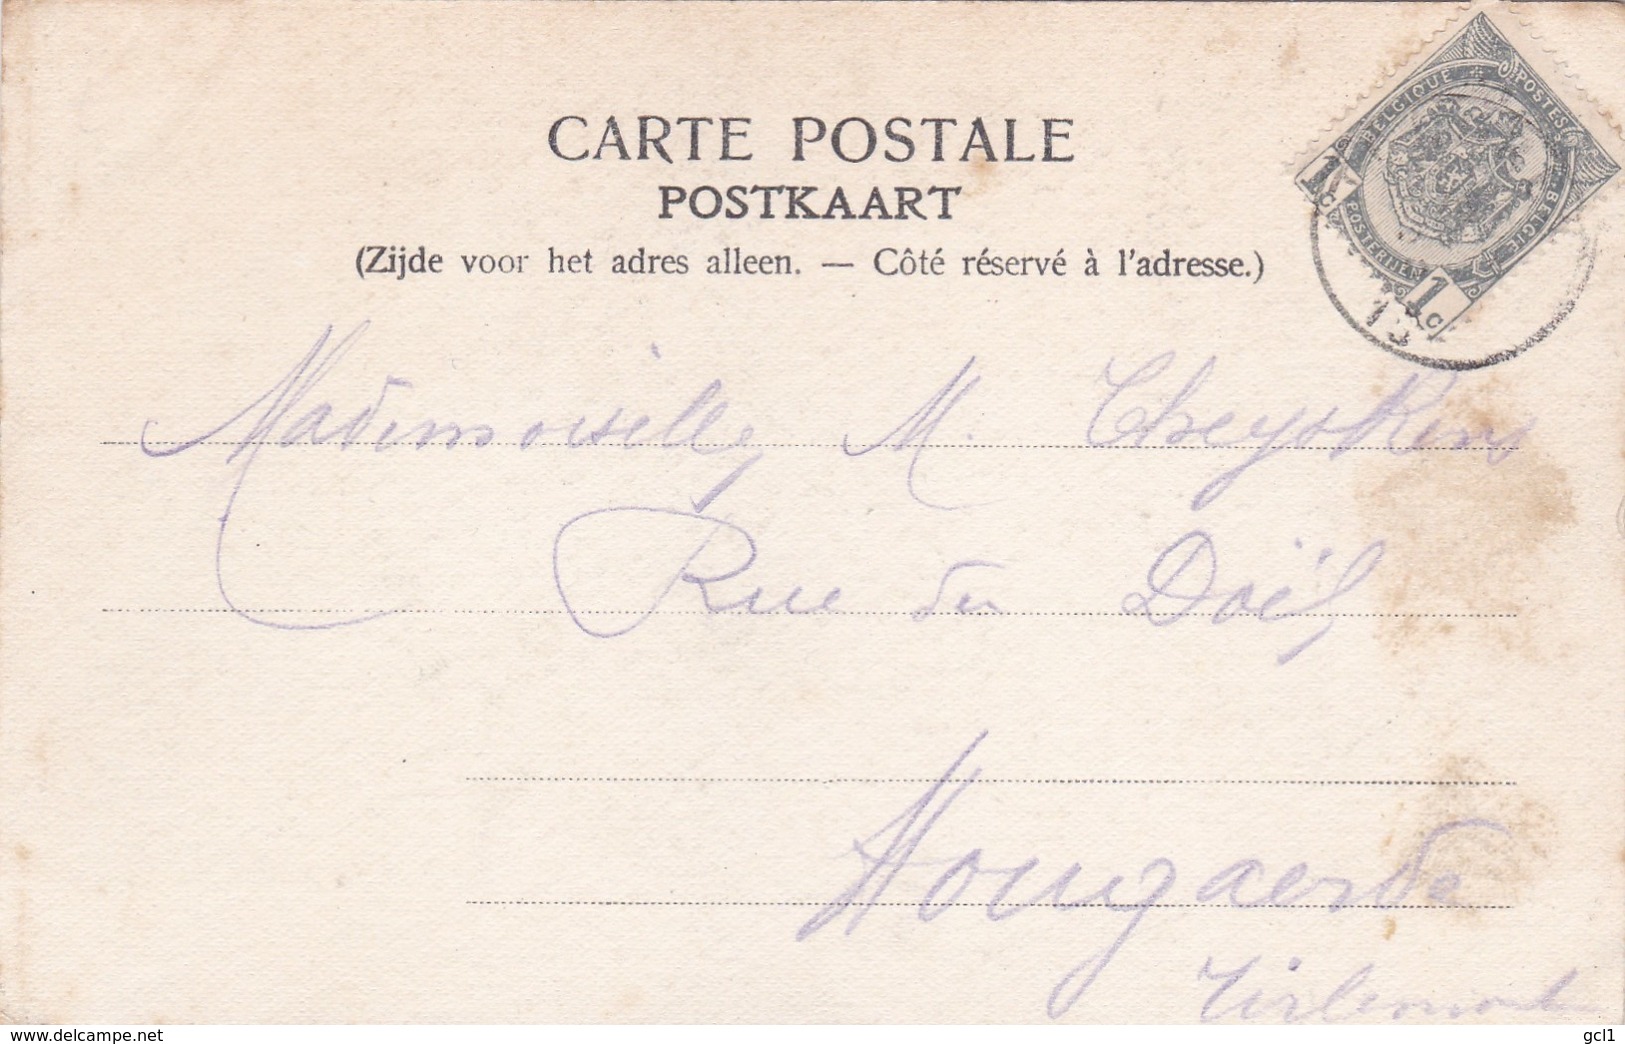 CARTE POSTALE
POSTKAART
(Zijde voor het adres alleen. — Côté réservé à l'adresse.)
BELGIQUE * POSTES
POSTERIJEN BELGIË
1c
1c
13
Mademoiselle M. Theyskens
Rue du Doël
Hougaerde
Tirlemont
www.delcampe.net
gcl1